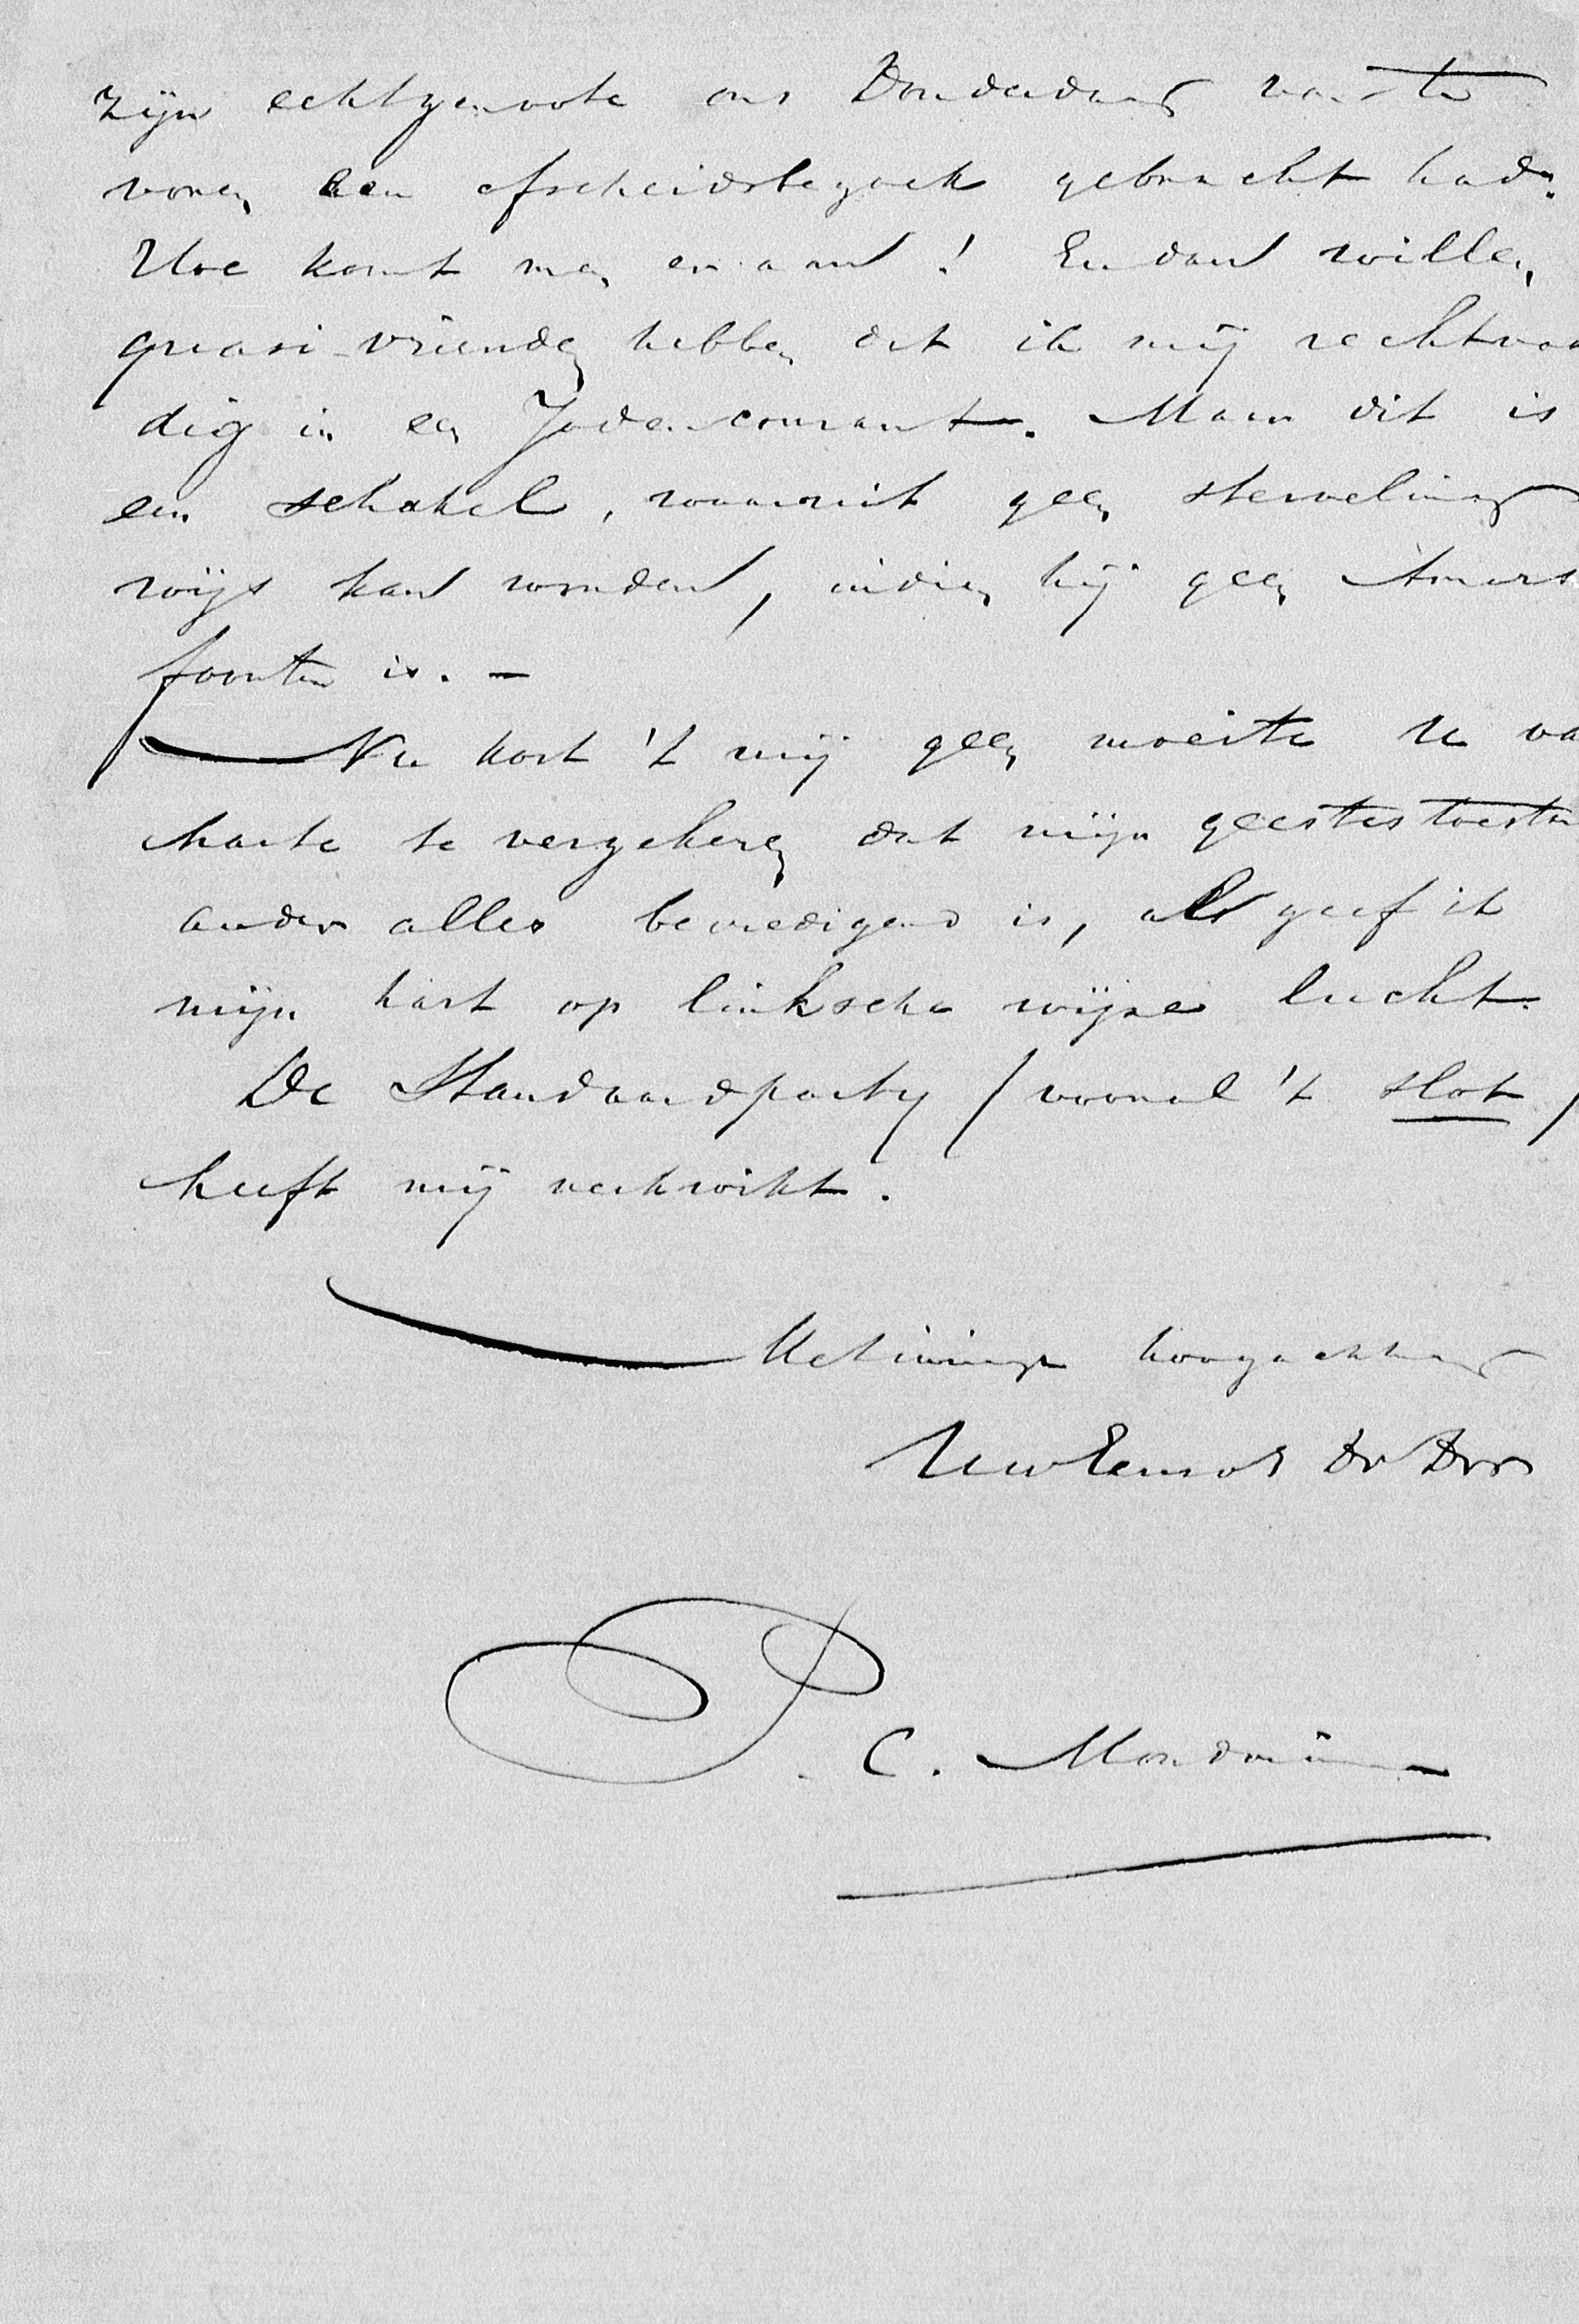 zijn echtgenoote ons Donderdag van te
voren een afscheidsbezoek gebracht had.
Hoe komt men er aan! En dan willen
quasi-vrienden hebben dat ik mij rechtvaar
dig in een Jodencourant. Maar dit is
een schakel, waaruit geen sterveling
wijs kan worden, indien hij geen Amers
foorter is. —
Nu kost 't mij geen moeite U van
harte te verzekeren dat mijn geestestoestand
ander alles bevredigend is, als geef ik
mijn hart op linksche wijze lucht.
De Standaardparty / vooral 't slot /
heeft mij verkwikt.
Met innige hoogachting
UwEerw ds Dr
P. C. Mondriaan